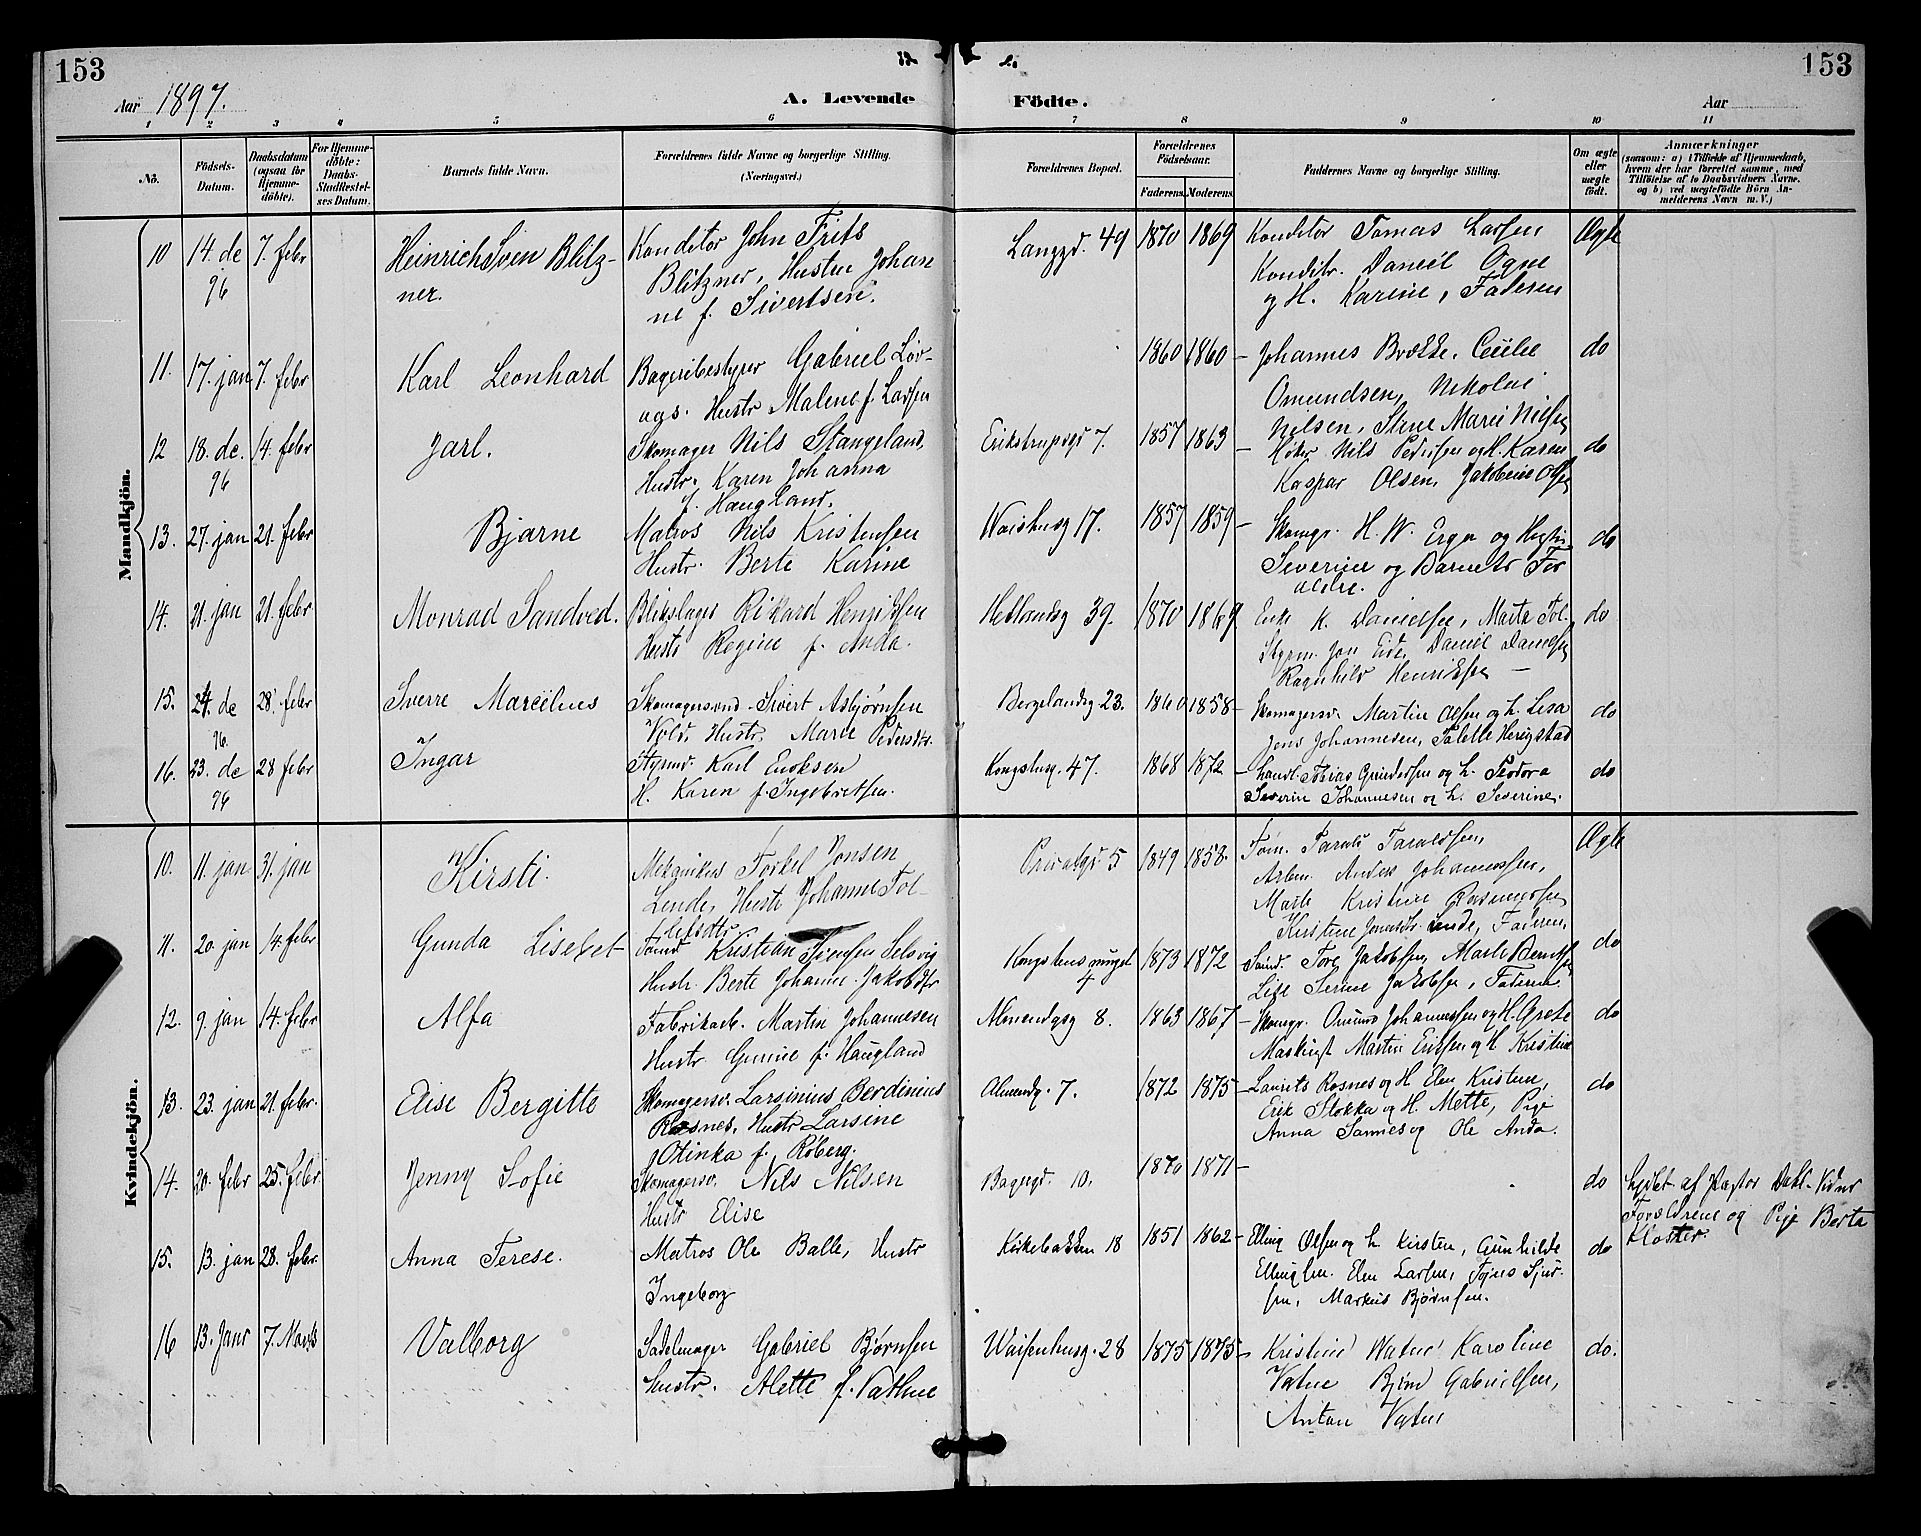 153
153
Aar 1897.
A. Levende
Födte.
Aar
1 2 3 4 5 6 7 8 9 10 11
No.
Födsels-
Datum.
Daabsdatum
(ogsaa for
Hjemme-
döbte).
For Hjemme-
döbte:
Daabs-
Stadfæstel-
ses Datum.
Barnets fulde Navn.
Forældrenes fulde Navne og borgerlige Stilling.
(Næringsvei.)
Forældrenes Bopæl.
Forældrenes
Födselsaar.
Faderens. Moderens.
Faddernes Navne og borgerlige Stilling.
Om ægte
eller
uægte
födt.
Anmærkninger
(saasom: a) i Tilfælde af Hjemmedaab,
hvem der har forrettet samme, med
Tilföielse af to Daabsvidners Navne,
og b) ved uægtefödte Börn An-
melderens Navn m. V.)
Mandkjön.
10 14. de 96 7. febr
Heinrich Sven Blitz-
ner.
Konditor John Frits
Blitzner, Hustru Johan
ne f. Sivertsen.
Langgd. 49 1870 1869
Konditor Tomas Larsen
Konditr. Daniel Ogne
og H. Karine, Faderen
Ægte
11. 17. jan 7. febr
Karl Leonhard
Bageribestyrer Gabriel Löv-
aas. Hustr Malene f. Larsen
1860 1860
Johannes Brække, Cecilie
Omundsen, Nikolai
Nilsen, Stine Marie Nilsen
do
12 18. de. 96 14. febr
Jarl.
Skomager Nils Stangeland,
Hustr. Karen Johanna
f. Haugland.
7. 1857 1863
Nils Pedersen og H. Karen
Kaspar Olsen, Jakobine Olsen
do
13. 27. jan 21. febr
Bjarne
Matros Nils Kristensen
Hustr. Berte Karine
Waishusg 17. 1857 1859
Skomgr. H. W. og Hustr
Severine og Barnets For
ældre.
do
14. 21. jan 21. febr
Monrad Sandved.
Blikslager Rikard Henriksen
Hustr Regine f. Anda.
Hetlandsg 39. 1870 1869
K. Danielsen, Marta Tol
Styrm. Jon Eide, Daniel Danielsen
Ragnhild Henriksen
do
15. 24. de 96. 28. febr
Sverre Marcelius
Skomagersvend Sivert Asbjørnsen
Vold, Hustr. Marie Pedersdtr.
Bergelandsg 23. 1860 1858
Skomagersv. Martin Olsen og h. Lisa
Jens Johannesen, Talette Herigstad
do
16. 23. de 96 28 febr
Ingar
Styrmd. Karl Enoksen
H. Karen f. Ingebretsen.
Kongshusg. 47. 1868 1872
Handl. Tobias Gundersen og h. Teodora
Severin Johannesen og h. Severine.
do
Kvindekjön.
10. 11. jan 31. jan
Kirsti.
Mekanikus Torkel Jonsen
Lende, Hustr Johanne Tol-
lefsdtr.
5 1849 1858.
Töm. Tarald Taraldsen,
Arbm. Anders Johannessen,
Marte Kristine Rasmussen
Kirstine Lende, Faderen.
Ægte
11. 20. jan 14. febr
Gunda Lisebet
Kristian Selsvig
Hustr. Berte Johanne Jakobsdtr
4 1873 1872
Tore Jakobsen, Marte Berntsen
Lise Serine Jakobsen, Faderen.
do
12. 9. jan 14. febr
Alfa
Fabrikarb. Martin Johannesen
Hustr Gunne f. Haugland
Almendgsg 8. 1863 1867
Skomgr. Omund Johannessen og H. Grete
Maskinst Martin Eriksen og H Kristine
do
13. 23. jan 21. febr.
Elise Bergitte
Skomagersv. Larsinius Berdinius
Rosnes, Hustr Larsine
Otinka f. Røberg.
Almendg. 7. 1872 1875
Laurits Rosnes og H Elen Kristine,
Erik Stokka og H. Mette, Pige
Anna Sømes og Ole Anda.
do
14. 20. febr 25. febr
Jenny Sofie
Skomagersv. Nils Nilsen
Hustr Elise
Bagergd. 10. 1870 1871
do
af Pastor Dahl. Vidner
Forældrene og Pige Berta
Kloster.
15. 13. jan 28. febr.
Anna Terese.
Matros Ole Balle, Hustr
Ingeborg
Kirkebakken 18 1851 1862
Elling Olsen og h. Kirsten, Gunhilde
Ellingsen. Elen Larsen, Tønes Sjur-
sen, Markus Bjørnsen.
do
16 13. Janr 7. Marts
Valborg
Sadelmager Gabriel Bjørnsen
Hustr. Alette f. Vathne
Waisenhusg. 28 1875 1875
Kristine Watne Karoline
Vatne Bjørn Gabrielsen,
Anton Vatne
do.